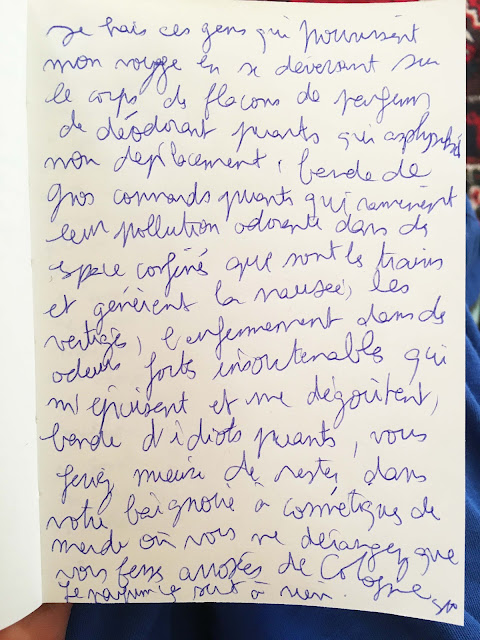 Je hais ces gens qui pourrissent
mon voyage en se déversant sur
le corps des flacons de parfum,
de déodorant puants qui asphyxie
mon déplacement, bande de
gros connards puants qui ramènent
leur pollution odorante dans des
espace confinés que sont les trains
et génèrent la nausée, les
vertiges, l'enfermement dans des
odeurs forts insoutenables qui
m'épuisent et me dégoûtent,
bande d'idiots puants, vous
feriez mieux de rester dans
votre baignoire à cosmétiques de
merde où vous ne dérangez que
vos fesses arrosées de Cologne
Le parfum ce sert à rien.